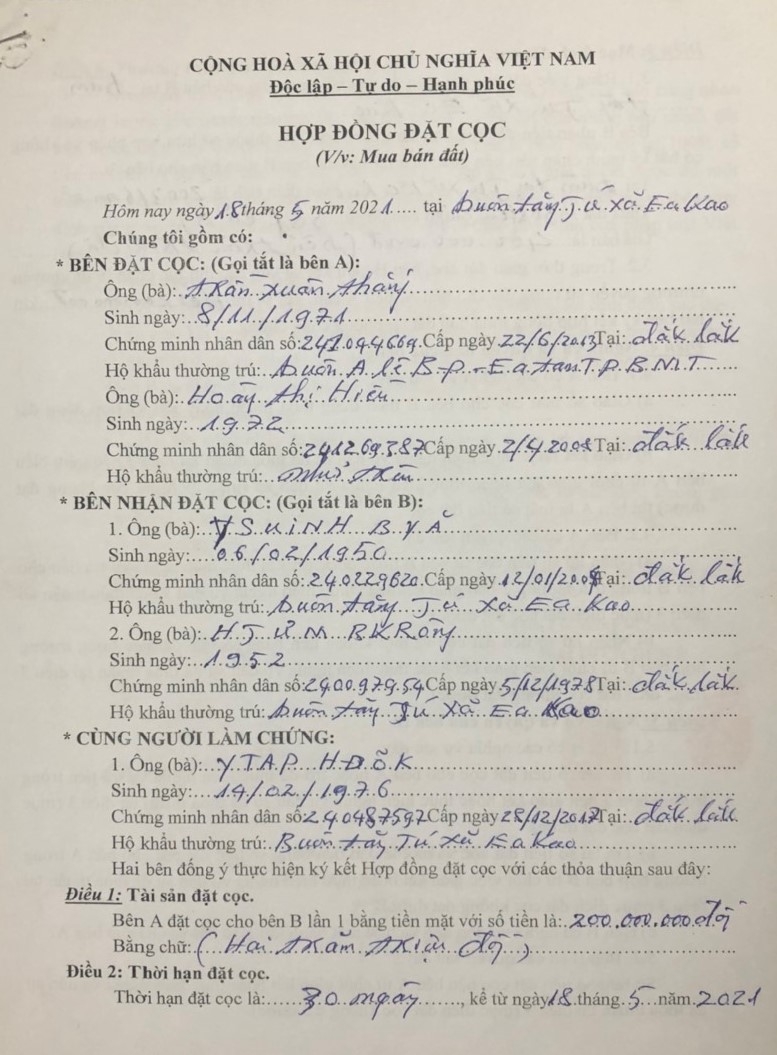 CỘNG HOÀ XÃ HỘI CHỦ NGHĨA VIỆT NAM
Độc lập – Tự do – Hạnh phúc
HỢP ĐỒNG ĐẶT CỌC
(V/v: Mua bán đất)
Hôm nay ngày 18 tháng 5 năm 2021.... tại Buôn tăng Jú xã Ea Kao
Chúng tôi gồm có:
* BÊN ĐẶT CỌC: (Gọi tắt là bên A):
Ông (bà): Trần Xuân Thắng
Sinh ngày: 8/11/1971
Chứng minh nhân dân số: 241094669 Cấp ngày 22/6/2013 Tại: đắk lắk
Hộ khẩu thường trú: Buôn A lê B - P - Ea tam T.P.B.M.T
Ông (bà): Hoàng thị Hiền
Sinh ngày: 1972
Chứng minh nhân dân số: 241269387 Cấp ngày 2/4/2008 Tại: đắk lắk
Hộ khẩu thường trú: như trên
* BÊN NHẬN ĐẶT CỌC: (Gọi tắt là bên B):
1. Ông (bà): Y SUINH BYĂ
Sinh ngày: 06/02/1950
Chứng minh nhân dân số: 240229620 Cấp ngày 12/01/200 Tại: đắk lắk
Hộ khẩu thường trú: buôn tăng Jú xã Ea Kao
2. Ông (bà): H JƯM BKRông
Sinh ngày: 1952
Chứng minh nhân dân số: 240097954 Cấp ngày 5/12/1978 Tại: đắk lắk
Hộ khẩu thường trú: buôn tăng Jú xã Ea Kao
* CÙNG NGƯỜI LÀM CHỨNG:
1. Ông (bà): Y TAP HĐƠK
Sinh ngày: 14/02/1976
Chứng minh nhân dân số: 240487597 Cấp ngày 28/12/2017 Tại: đắk lắk
Hộ khẩu thường trú: Buôn tăng Jú xã Ea Kao
Hai bên đống ý thực hiện ký kết Hợp đồng đặt cọc với các thỏa thuận sau đây:
Điều 1: Tài sản đặt cọc.
Bên A đặt cọc cho bên B lần 1 bằng tiền mặt với số tiền là: 200.000.000 đồng
Bằng chữ: (Hai trăm triệu đồng)
Điều 2: Thời hạn đặt cọc.
Thời hạn đặt cọc là: 30 ngày, kể từ ngày 18 tháng 5 năm 2021